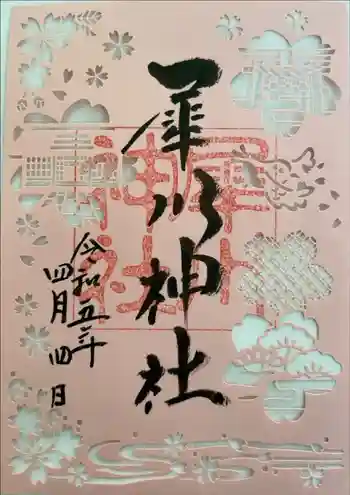 犀川神社
令和五年
四月四日
犀川
神社